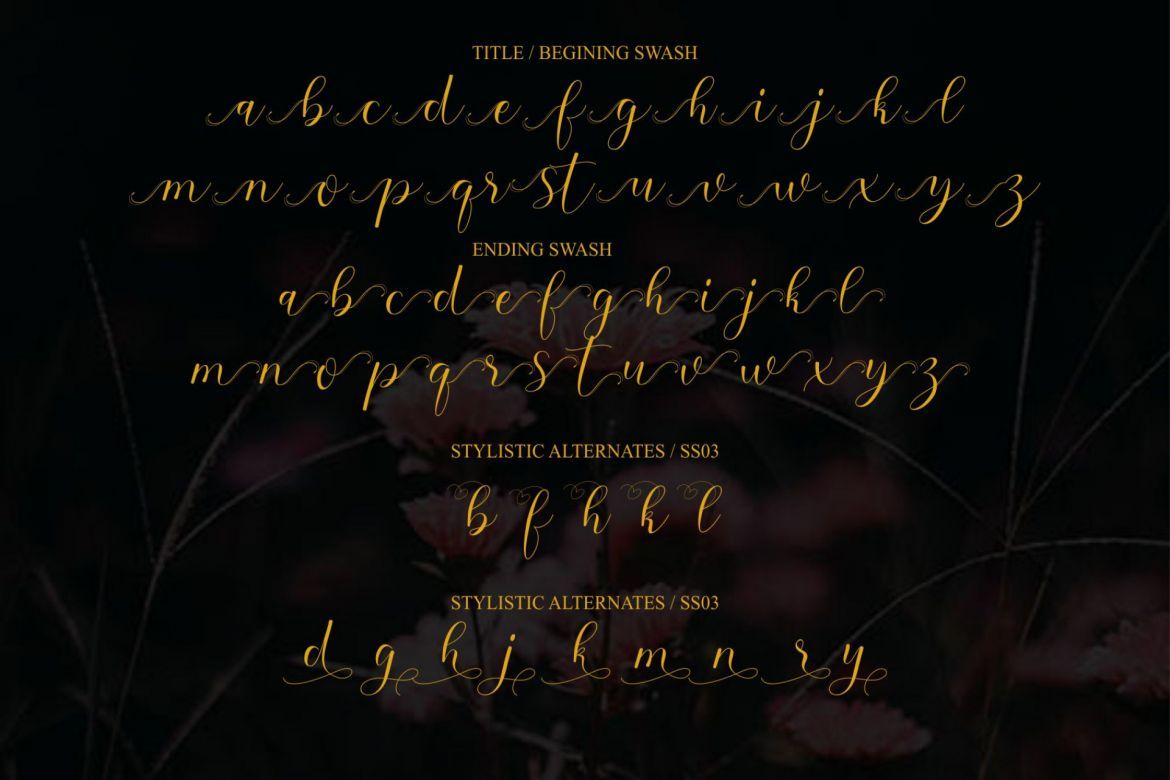 TITLE / BEGINING SWASH
a b c d e f g h i j k l
m n o p q r s t u v w x y z
ENDING SWASH
a b c d e f g h i j k l
m n o p q r s t u v w x y z
STYLISTIC ALTERNATES / SS03
b f h k l
STYLISTIC ALTERNATES / SS03
d g h j k m n r y